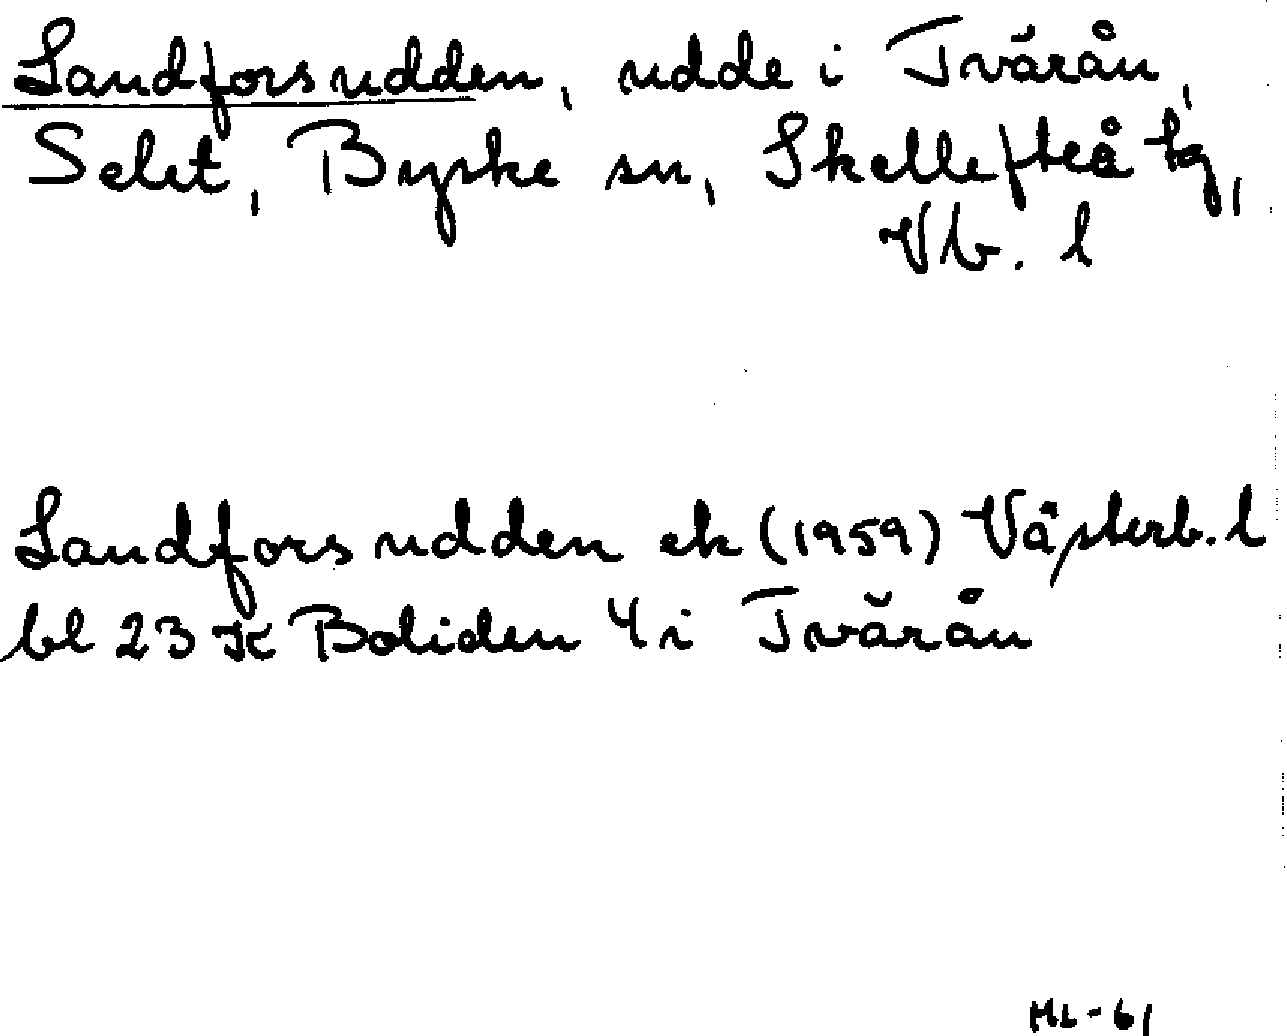 Landforsudden, udde i Tvärån,
Selet, Byske sn, Skellefteå tg,
Vb. l
Landforsudden ek (1959) Västerb. l
bl 23 K Boliden 4 i Tvärån
ML-61